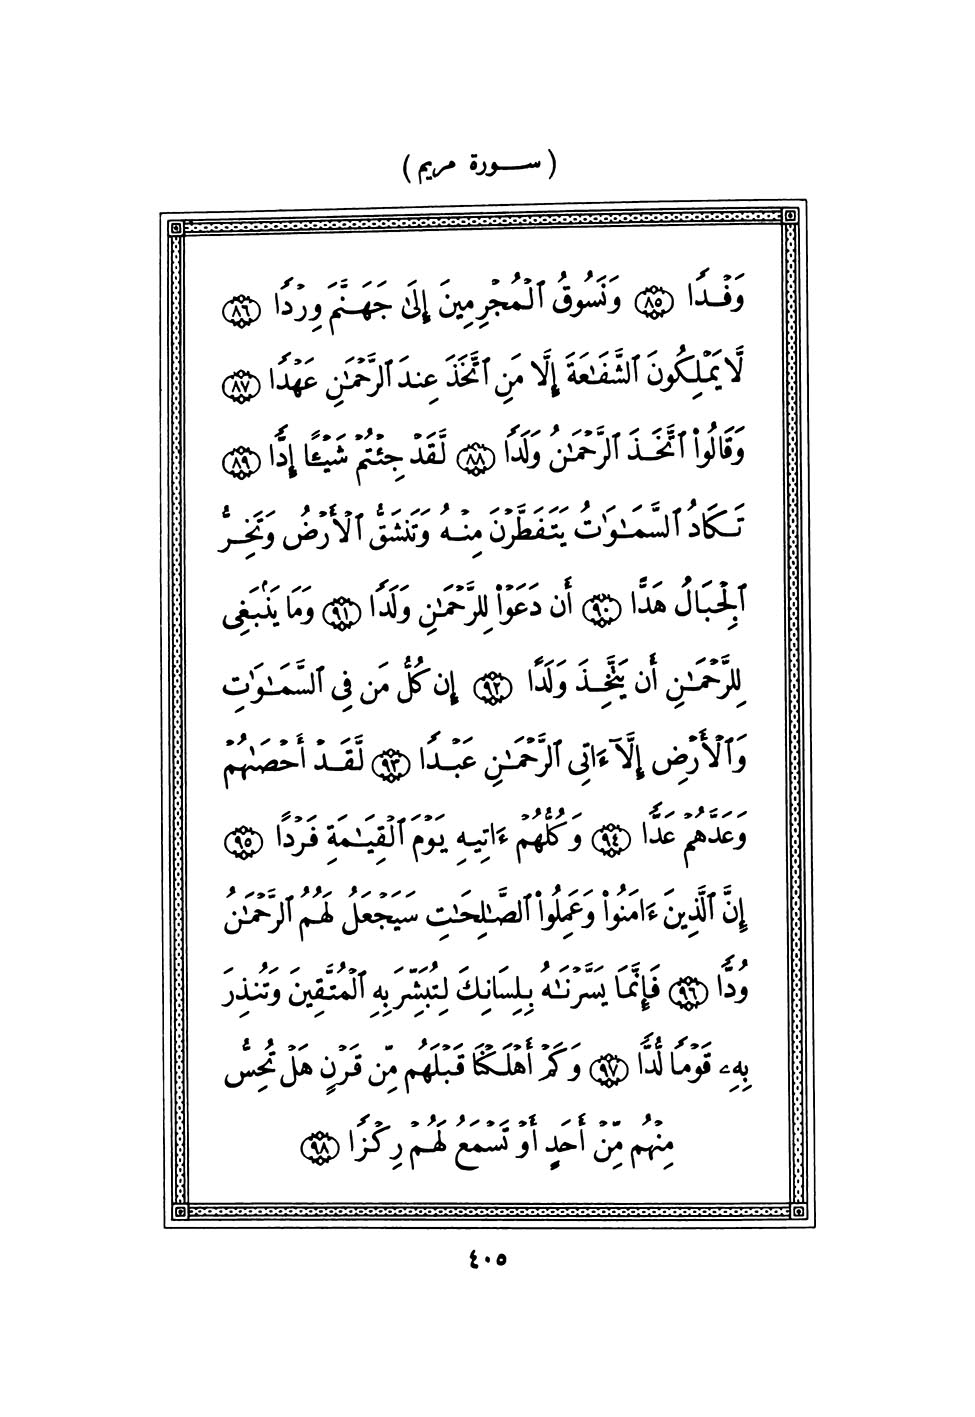 ( ســورة مريم )
وَفْدًا ﴿٨٥﴾ وَنَسُوقُ ٱلْمُجْرِمِينَ إِلَىٰ جَهَنَّمَ وِرْدًا ﴿٨٦﴾
لَّا يَمْلِكُونَ ٱلشَّفَـٰعَةَ إِلَّا مَنِ ٱتَّخَذَ عِندَ ٱلرَّحْمَـٰنِ عَهْدًا ﴿٨٧﴾
وَقَالُوا۟ ٱتَّخَذَ ٱلرَّحْمَـٰنُ وَلَدًا ﴿٨٨﴾ لَّقَدْ جِئْتُمْ شَيْـًٔا إِدًّا ﴿٨٩﴾
تَكَادُ ٱلسَّمَـٰوَٰتُ يَتَفَطَّرْنَ مِنْهُ وَتَنشَقُّ ٱلْأَرْضُ وَتَخِرُّ
ٱلْجِبَالُ هَدًّا ﴿٩٠﴾ أَن دَعَوْا۟ لِلرَّحْمَـٰنِ وَلَدًا ﴿٩١﴾ وَمَا يَنۢبَغِى
لِلرَّحْمَـٰنِ أَن يَتَّخِذَ وَلَدًا ﴿٩٢﴾ إِن كُلُّ مَن فِى ٱلسَّمَـٰوَٰتِ
وَٱلْأَرْضِ إِلَّآ ءَاتِى ٱلرَّحْمَـٰنِ عَبْدًا ﴿٩٣﴾ لَّقَدْ أَحْصَىٰهُمْ
وَعَدَّهُمْ عَدًّا ﴿٩٤﴾ وَكُلُّهُمْ ءَاتِيهِ يَوْمَ ٱلْقِيَـٰمَةِ فَرْدًا ﴿٩٥﴾
إِنَّ ٱلَّذِينَ ءَامَنُوا۟ وَعَمِلُوا۟ ٱلصَّـٰلِحَـٰتِ سَيَجْعَلُ لَهُمُ ٱلرَّحْمَـٰنُ
وُدًّا ﴿٩٦﴾ فَإِنَّمَا يَسَّرْنَـٰهُ بِلِسَانِكَ لِتُبَشِّرَ بِهِ ٱلْمُتَّقِينَ وَتُنذِرَ
بِهِۦ قَوْمًا لُّدًّا ﴿٩٧﴾ وَكَمْ أَهْلَكْنَا قَبْلَهُم مِّن قَرْنٍ هَلْ تُحِسُّ
مِنْهُم مِّنْ أَحَدٍ أَوْ تَسْمَعُ لَهُمْ رِكْزًا ﴿٩٨﴾
٤٠٥